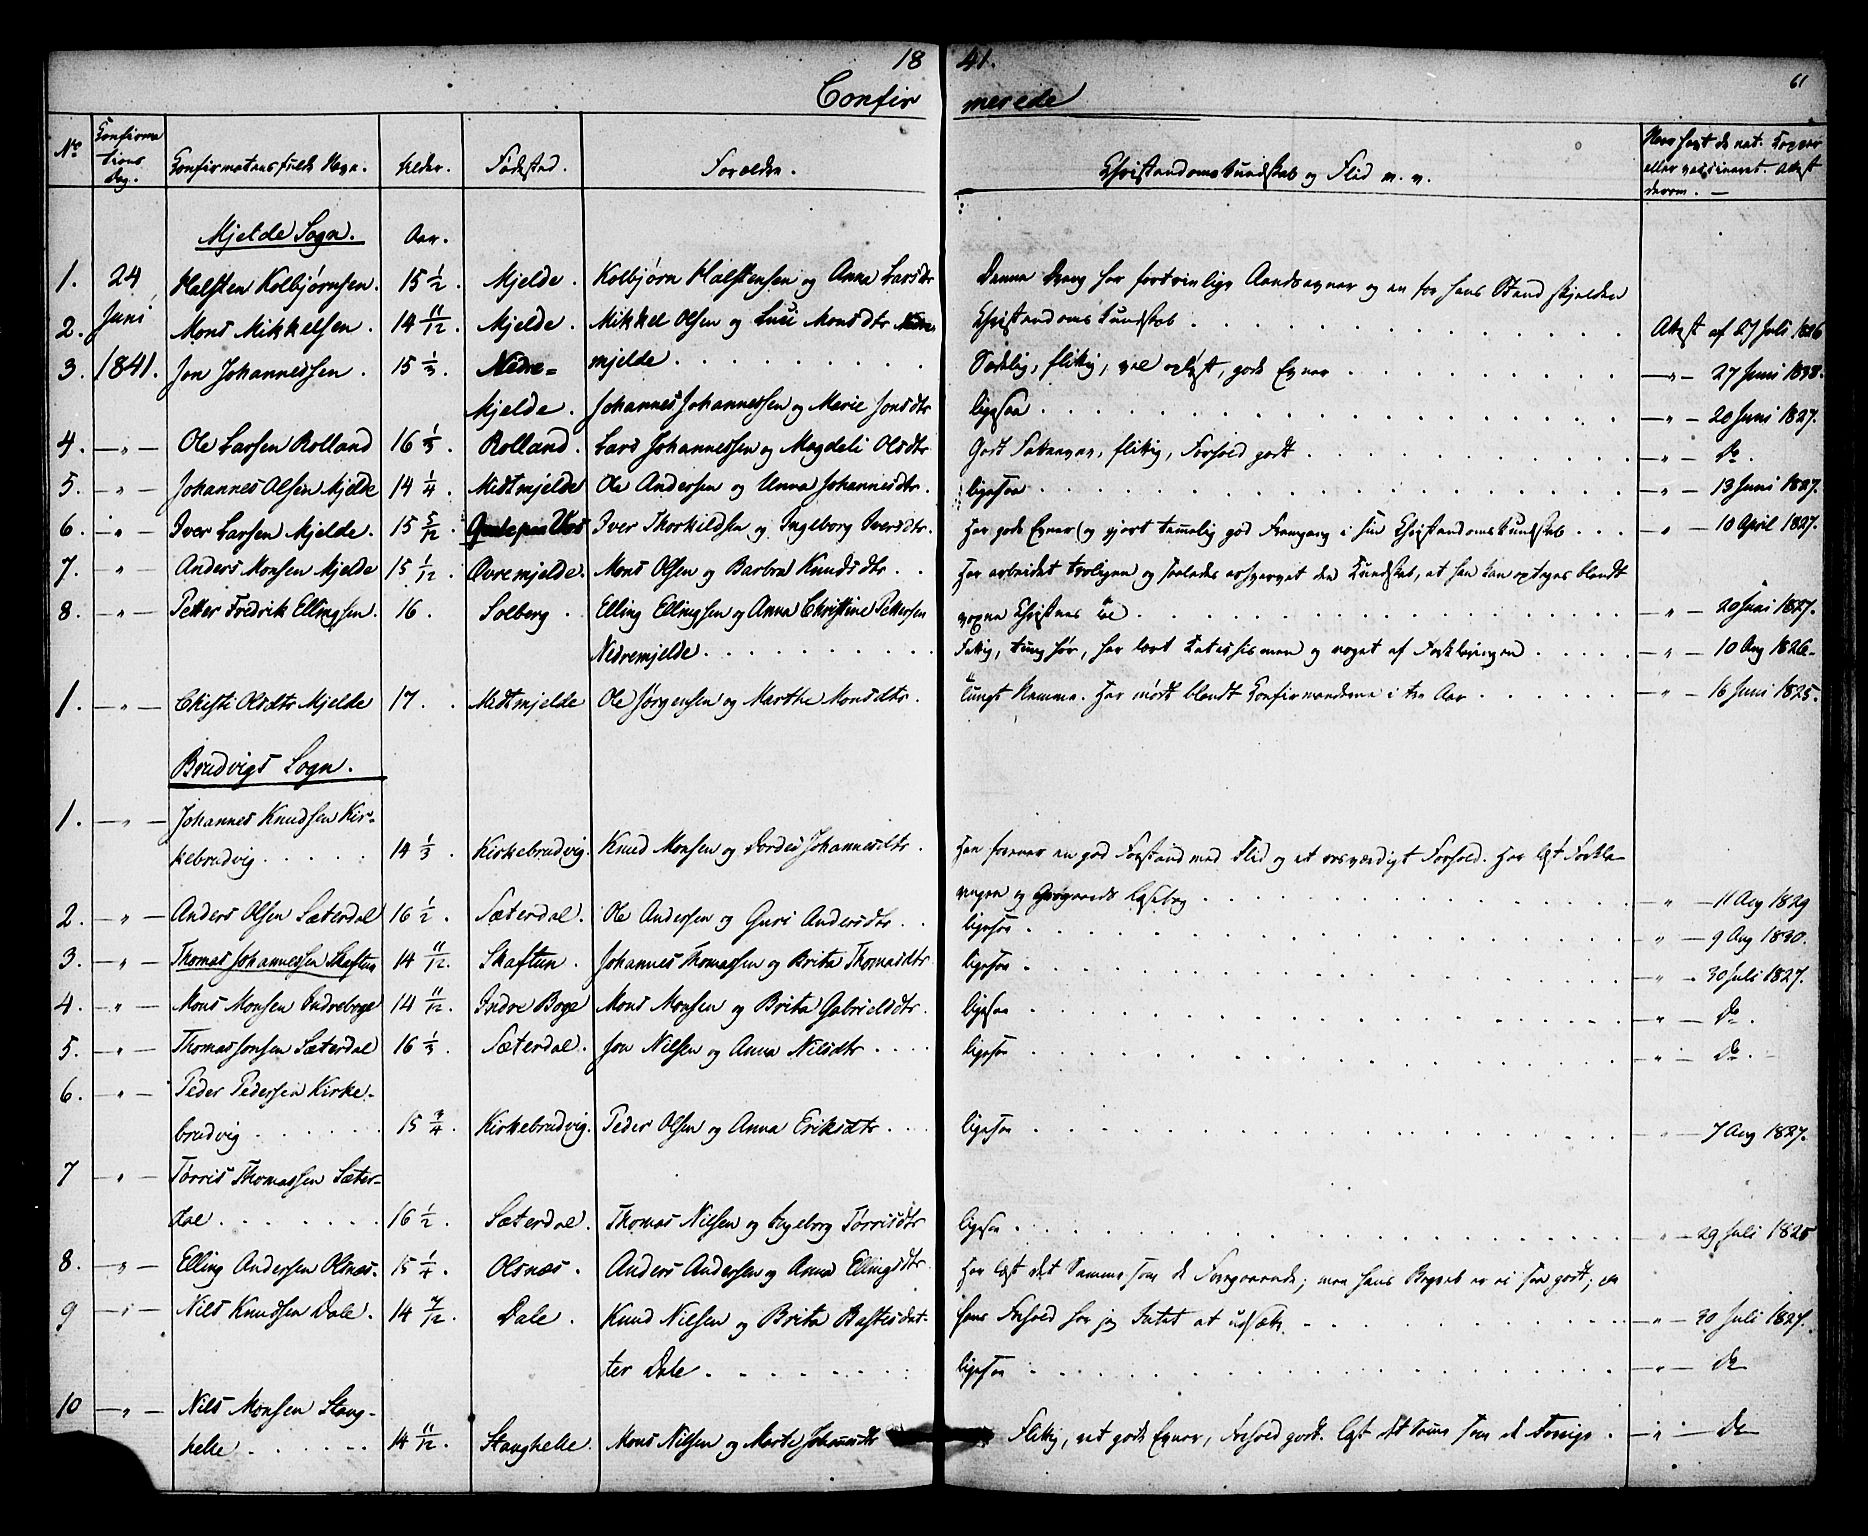 18 41.
61
Confir merede
No Confirma tions dag. Confirmatens fulde Navn. Alder. Fødested. Forældre. Christendomskundskab og Flid m. v. Naar havt de nat. Kopper eller vaccineret. Attest derom. —
Mjelde Sogn. Aar.
1. 24 Halsten Kolbjørnsen. 15 1/2. Mjelde. Kolbjørn Halstensen og Anna Larsdtr Denne Dreng har fortrinlige Aandsevner og en for hans Stand sjelden
2. Juni Mons Mikkelsen. 14 11/12. Mjelde. Mikkel Olsen og Luci Monsdtr Nedre- Christendomskundskab. Attest af 27 Juli 1826
3. 1841. Jon Johannessen. 15 1/3. Nedre- mjelde Sædelig, flittig, vel oplyst, gode Evner —"— 27 Juni 1838.
Mjelde. Johannes Johannessen og Marie Jonsdtr ligesaa —"— 20 Juni 1827.
4. —"— Ole Larsen Rolland 16 1/3. Rolland. Lars Johannessen og Magdeli Olsdtr Godt, flittig, Forhold godt —"— Do.
5. —"— Johannes Olsen Mjelde 14 1/4. Midtmjelde Ole Andersen og Unna Johannesdtr. ligesaa —"— 13 Juni 1827.
6. —"— Iver Larsen Mjelde. 15 5/12. Iver Thorkildsen og Ingeborg Iversdtr. Har gode Evner og gjort temmelig god Fremgang i sin Christendomskundskab —"— 10 April 1827.
7. —"— Anders Monsen Mjelde 15 1/12. Øvremjelde. Mons Olsen og Barbra Knudsdtr. Har arbeidet troligen og saaledes erhvervet den Kundskab, at han kan optages blandt
8. —"— Petter Fredrik Ellingsen. 16. Solberg. Elling Ellingsen og Anna Christine Pettersen voxne Christnes Tal —"— 20 Juni 1827.
Nedremjelde. Flittig, tung hør, har lært Katechismen og noget af Forklaringen —"— 10 Aug 1826.
1. —"— Christi Olsdtr Mjelde 17. Midtmjelde Ole Jørgensen og Marthe Monsdtr. Tungt Nemme. Har mødt blandt Confirmanderne i tre Aar —"— 16 Juni 1825.
Brudvigs Sogn.
1. —"— Johannes Knudsen Kir-
kebrudvig. 14 1/3. Kirkebrudvig. Knud Monsen og Dordei Johannesdtr. Han forener en god Forstand med Flid og et rosværdigt Forhold. Har læst Forkla-
ringen og Grøgaards Læsebog —"— 11 Aug 1829
2. —"— Anders Olsen Sæterdal 16 1/2. Sæterdal. Ole Andersen og Guri Andersdtr. ligesaa —"— 9 Aug 1830.
3. —"— Thomas Johannessen Skaftun 14 11/12. Skaftun. Johannes Thomassen og Brita Thomasdtr. ligesaa —"— 30 Juli 1827.
4. —"— Mons Monsen Indreboge 14 11/12. Indre Boge Mons Monsen og Brita Gabrielsdtr. ligesaa —"— Do.
5. —"— Thomas Jonsen Sæterdal 16 1/3. Sæterdal. Jon Nilsen og Anna Nilsdtr. ligesaa —"— Do.
6. —"— Peder Pedersen Kirke-
brudvig 15 3/4. Kirkebrudvig. Peder Olsen og Anna Eriksdtr. ligesaa —"— 7 Aug 1827.
7 —"— Tørris Thomassen Sæter-
dal. 16 1/2. Sæterdal. Thomas Nilsen og Ingeborg Tørrisdtr ligesaa —"— 29 Juli 1825
8. —"— Elling Andersen Olsnæs. 15 1/4. Olsnæs. Anders Andersen og Anna Ellingsdtr. Har læst det Samme som de Foregaaende; men hans Begreb er ei saa godt; paa
9 —"— Nils Knudsen Dale. 14 7/12. Dale. Knud Nielsen og Brita Bastesdat- hans Forhold har jeg Intet at udsætte. —"— 30 Juli 1827.
ter Dale. ligesaa —"— Do
10 —"— Nils Monsen Stang-
helle 14 11/12. Stanghelle. Mons Nilsen og Marte Johannesdtr Flittig, ret gode Evner, Forhold godt. Læst det samme som de Forrige. —"— Do